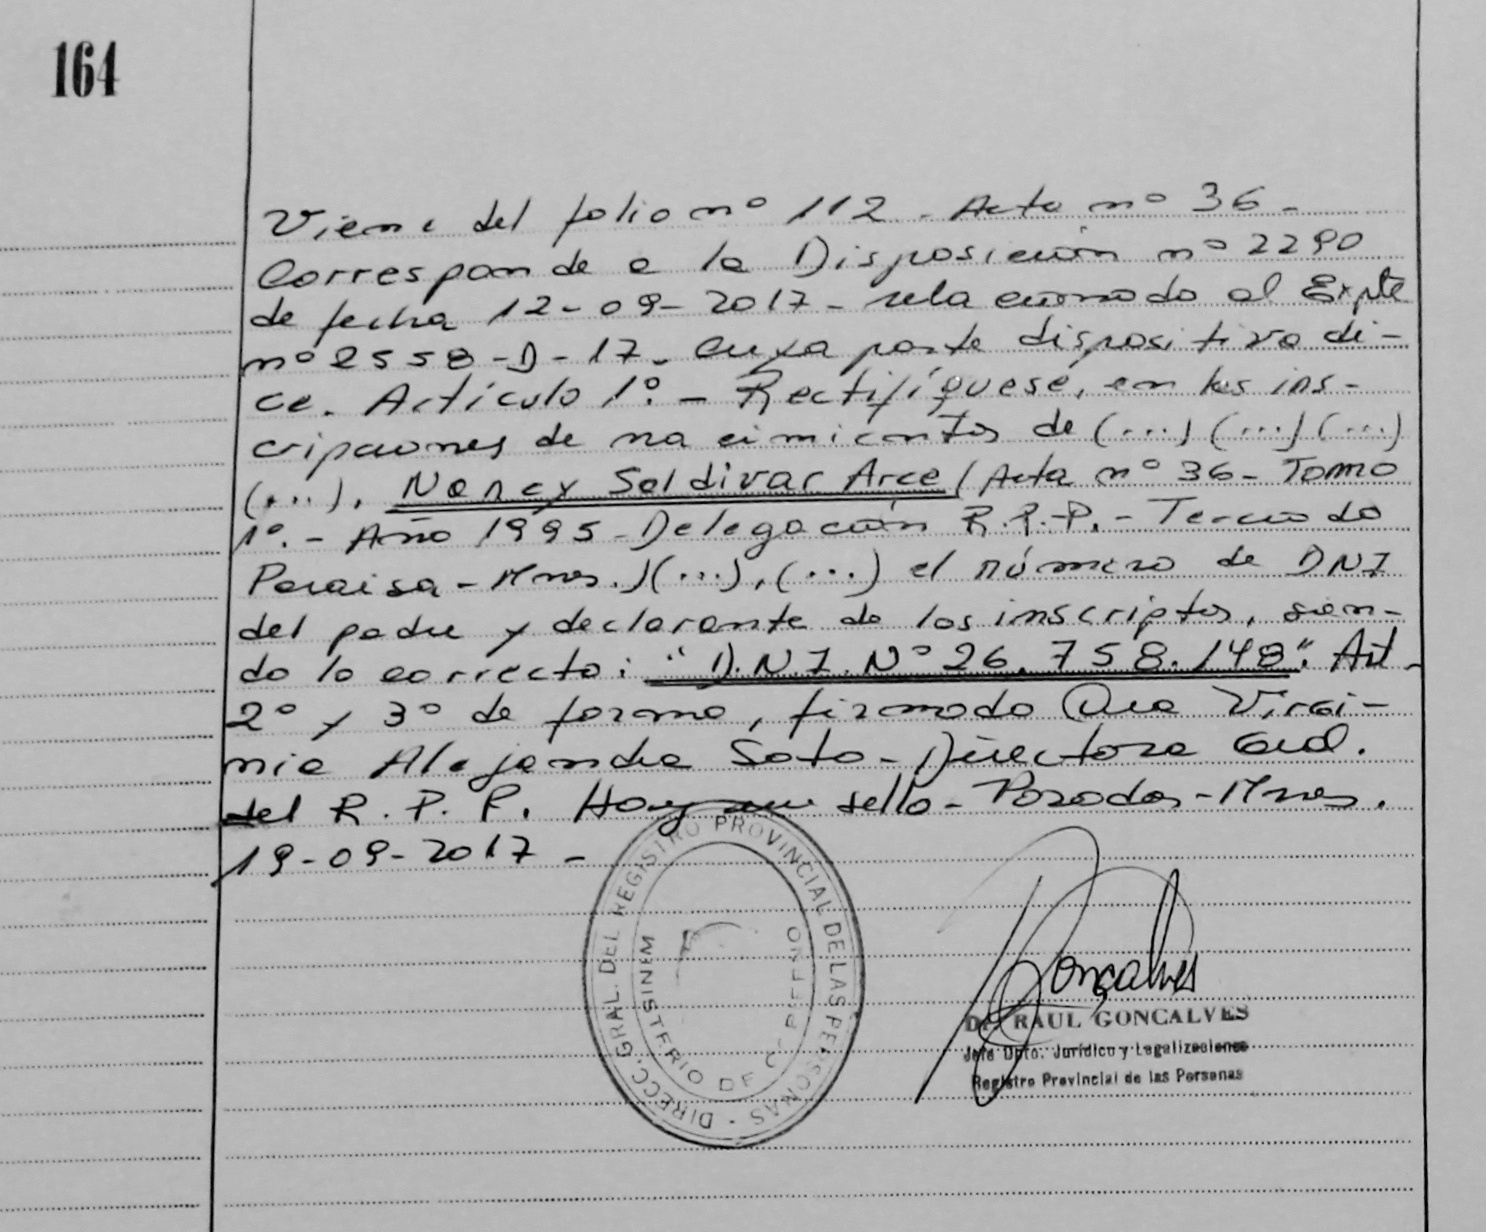 164
Viene del folio nº 112 - Acta nº 36 -
Corresponde a la Disposición nº 2290
de fecha 12-09-2017 - relacionado al Expte
nº 2558-D-17 - cuya parte dispositiva di-
ce. Artículo 1º. - Rectifíquese, en las ins-
cripciones de nacimientos de (...) (...) (...)
(...), Nancy Soldivar Arce / Acta nº 36 - Tomo
1º. - Año 1995 - Delegación R.P.P. - Tercio do
Paraiso - Mnes.)(...), (...) el número de DNI
del padre y declarante de los inscriptos, sien-
do lo correcto: "D.N.I. Nº 26.758.148". Art.
2º y 3º de forma, firmado Dra Virgi-
nia Alejandra Soto - Directora Gral.
del R.P.P. Hay un sello - Posadas - Mnes.
19-09-2017 -
DIRECC. GRAL. DEL REGISTRO PROVINCIAL DE LAS PERSONAS -
MINISTERIO DE GOBIERNO
Goncalves
Dr. RAUL GONCALVES
Jefe Dpto. Jurídico y Legalizaciones
Registro Provincial de las Personas